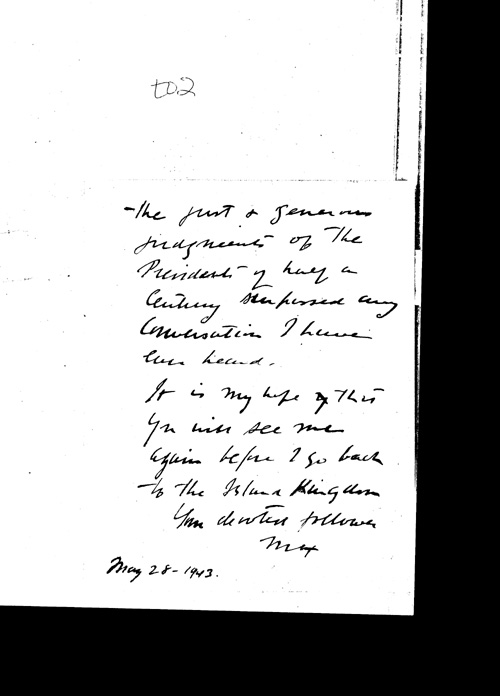 t0.2
The just & generous
judgments of The
Presidents of half a
Century surpassed any
Conversation I have
ever heard.
It is my hope that
you will see me
again before I go back
to the Island Kingdom
Your devoted follower
Max
May 28-1943.